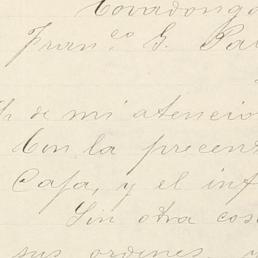 Covadonga
Fran.co G. Pa
de mi atencion
Con la precent
Casa, y el inf
Sin otra cos
sus ordenes, y